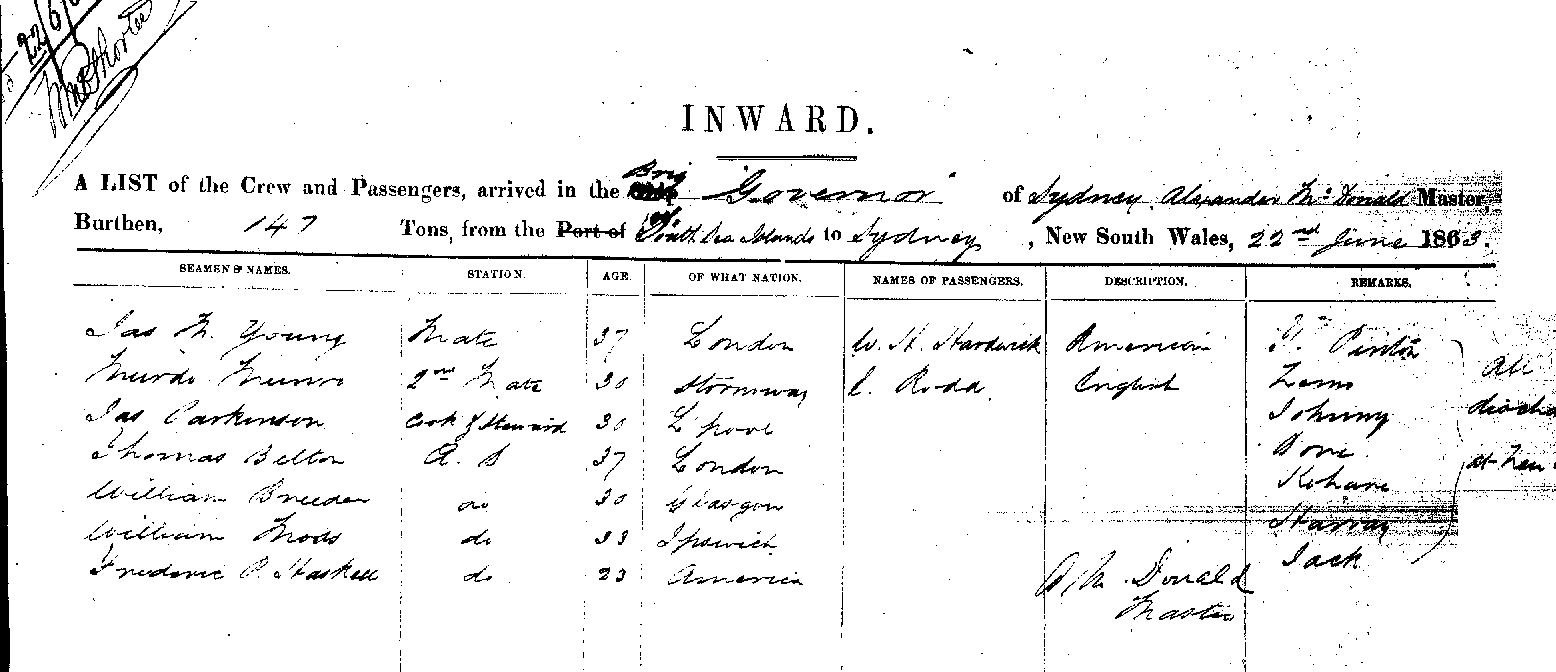 22/6/6
INWARD.
A LIST of the Crew and Passengers, arrived in the Brig Governor of Sydney, Alexander McDonald Master,
Burthen, 147 Tons, from the Port of South Sea Islands to Sydney, New South Wales, 22nd June 1863.
SEAMEN'S NAMES. STATION. AGE. OF WHAT NATION. NAMES OF PASSENGERS. DESCRIPTION. REMARKS.
Jas M. Young Mate 37 London W. H. Hardwick American
Murdo Munro 2nd Mate 30 Stornway C. Rodd English
Jas Parkinson Cook & Steward 30 Lpool Johnny
Thomas Belton A. B 37 London
William Breeden do 30 Glasgow
William Mods do 33 Ipswich
Frederic P. Haskell do 23 America Jack
All
A Mc Donald
Master